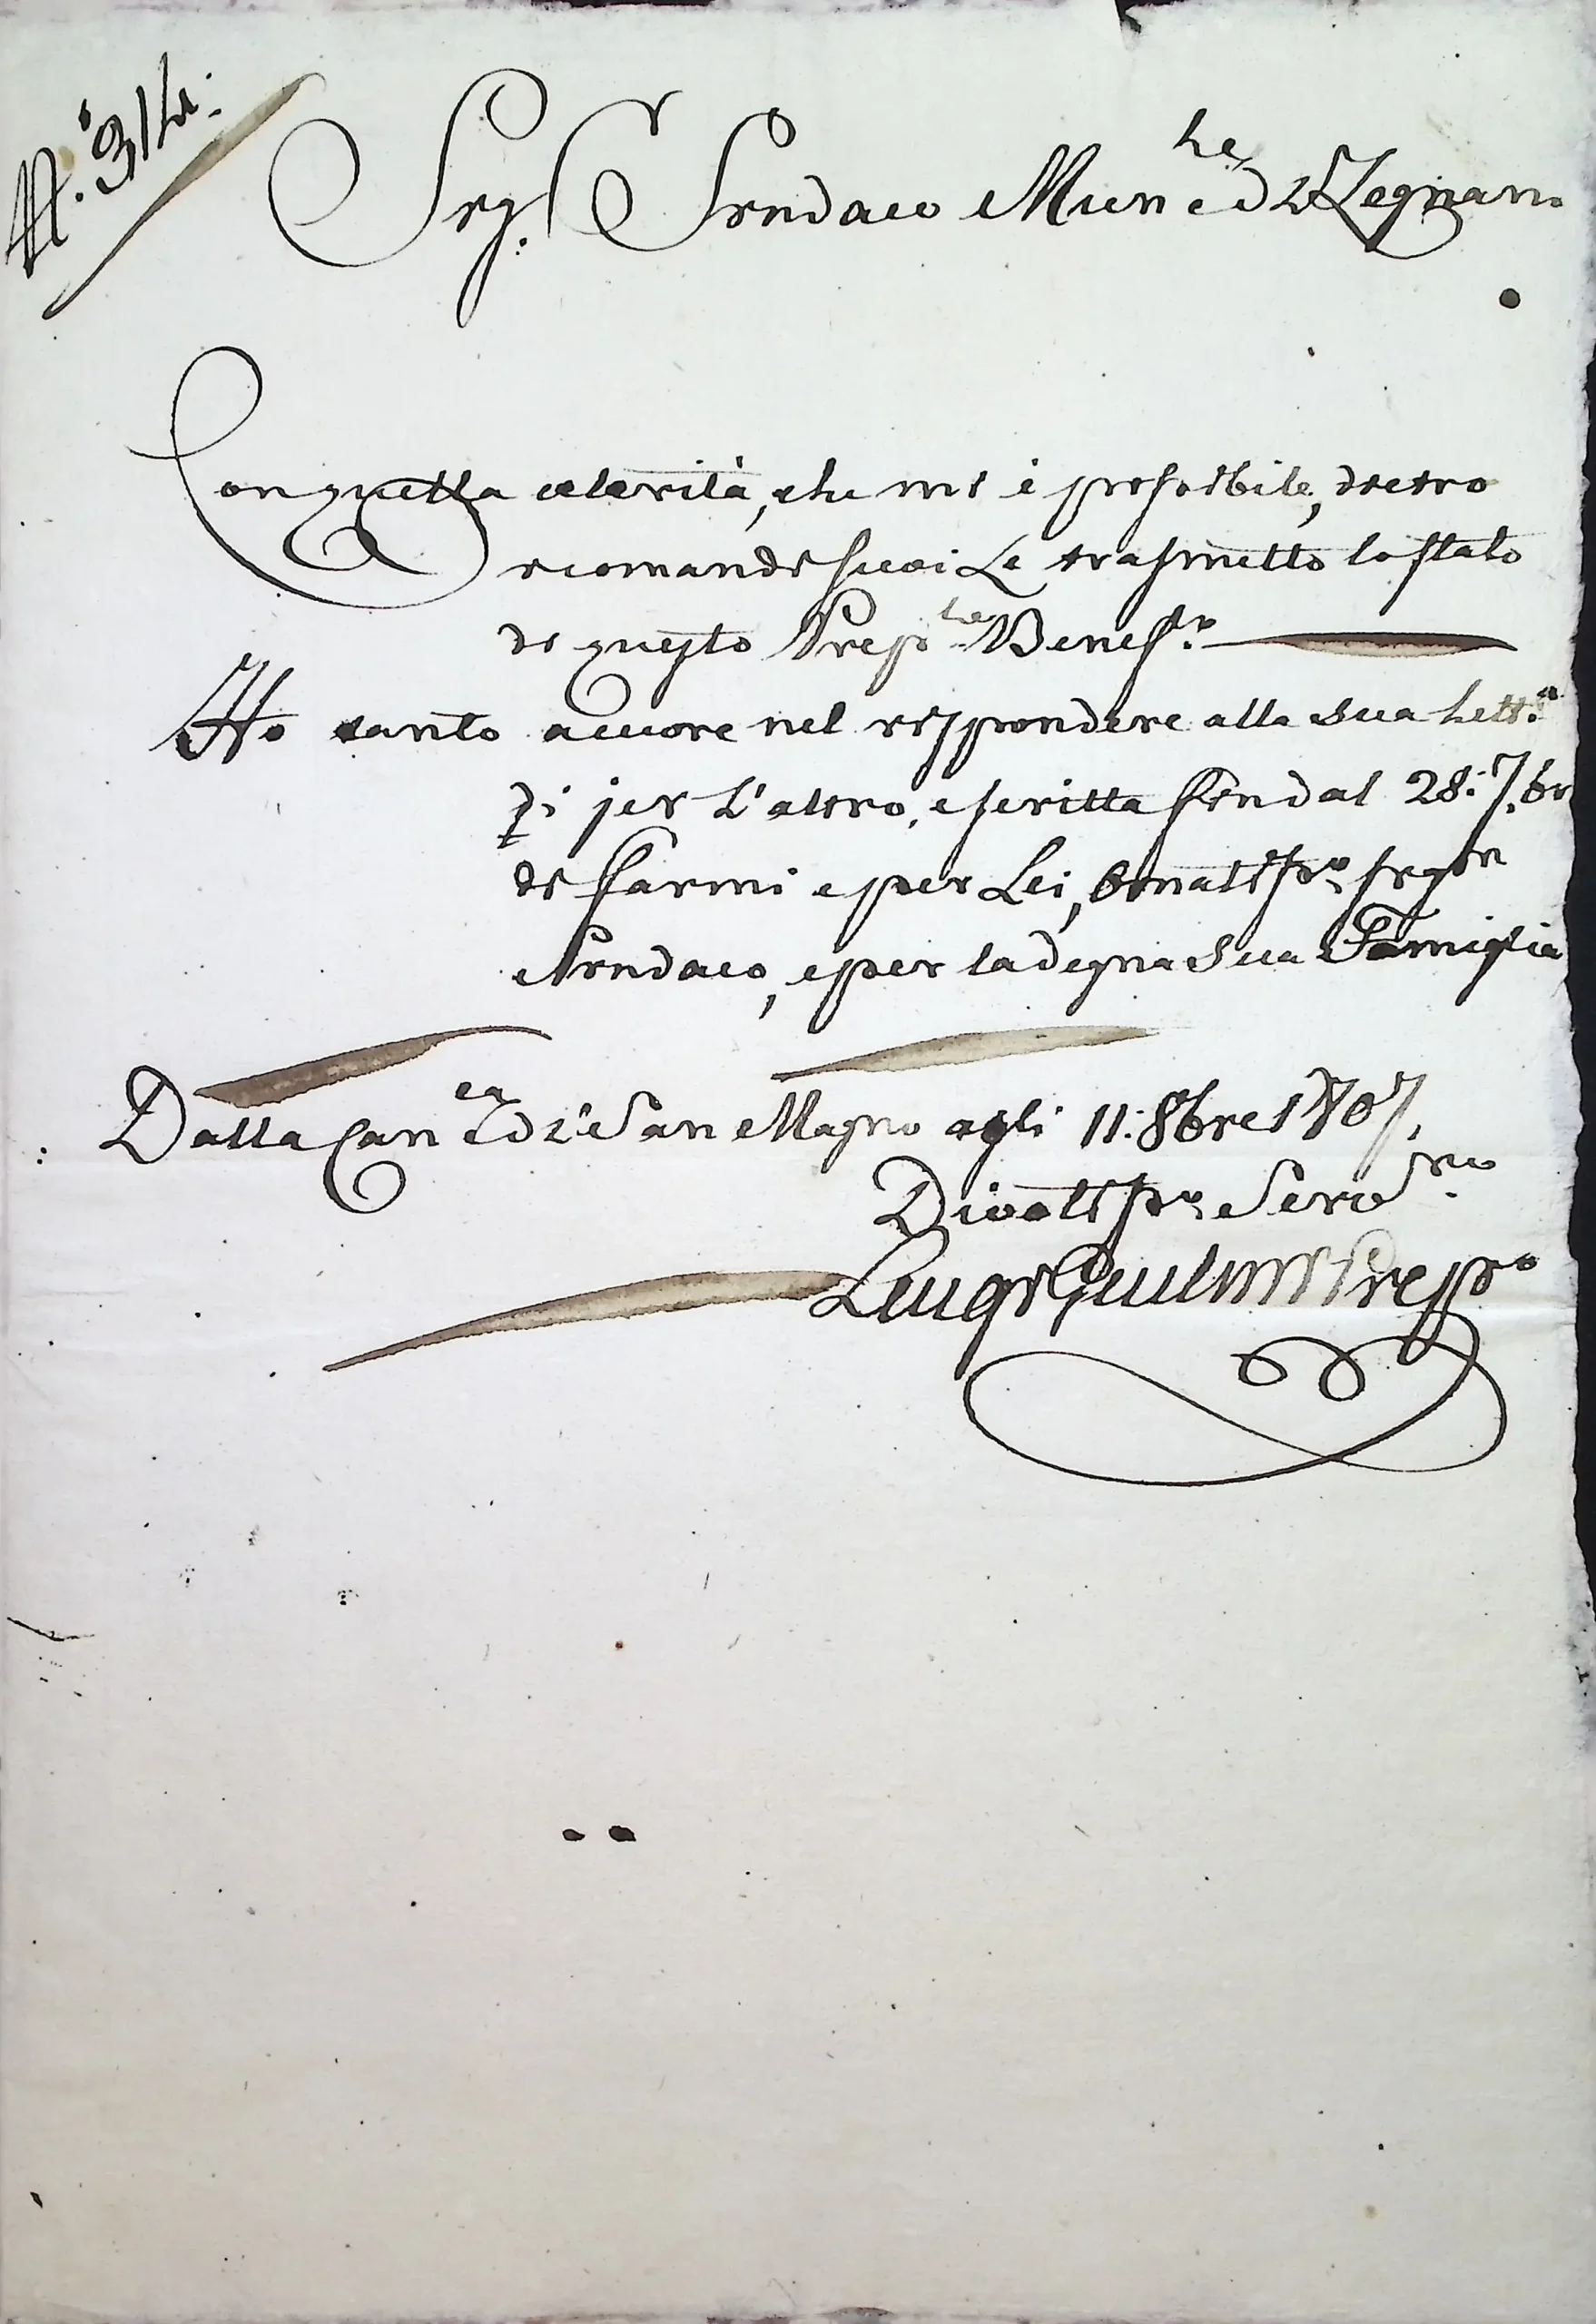 N.° 314:
Sig.r Sindaco Mun.le di Legnano
Con quella celerità, che mi è possibile, dietro
i comandi suoi Le trasmetto lo stato
di questo Prep.le Benef.o
Ho tanto a cuore nel rispondere alla sua Lett.a
di jer L'altro, e scritta sin dal 28: 7.br
di farmi e per Lei, Ornatis.mo sig.r
Sindaco, e per la degna sua Famiglia
Dalla Can.ca di San Magno agli 11: 8bre 1807,
Divotis.o Serv.re
Luigi Prep.o